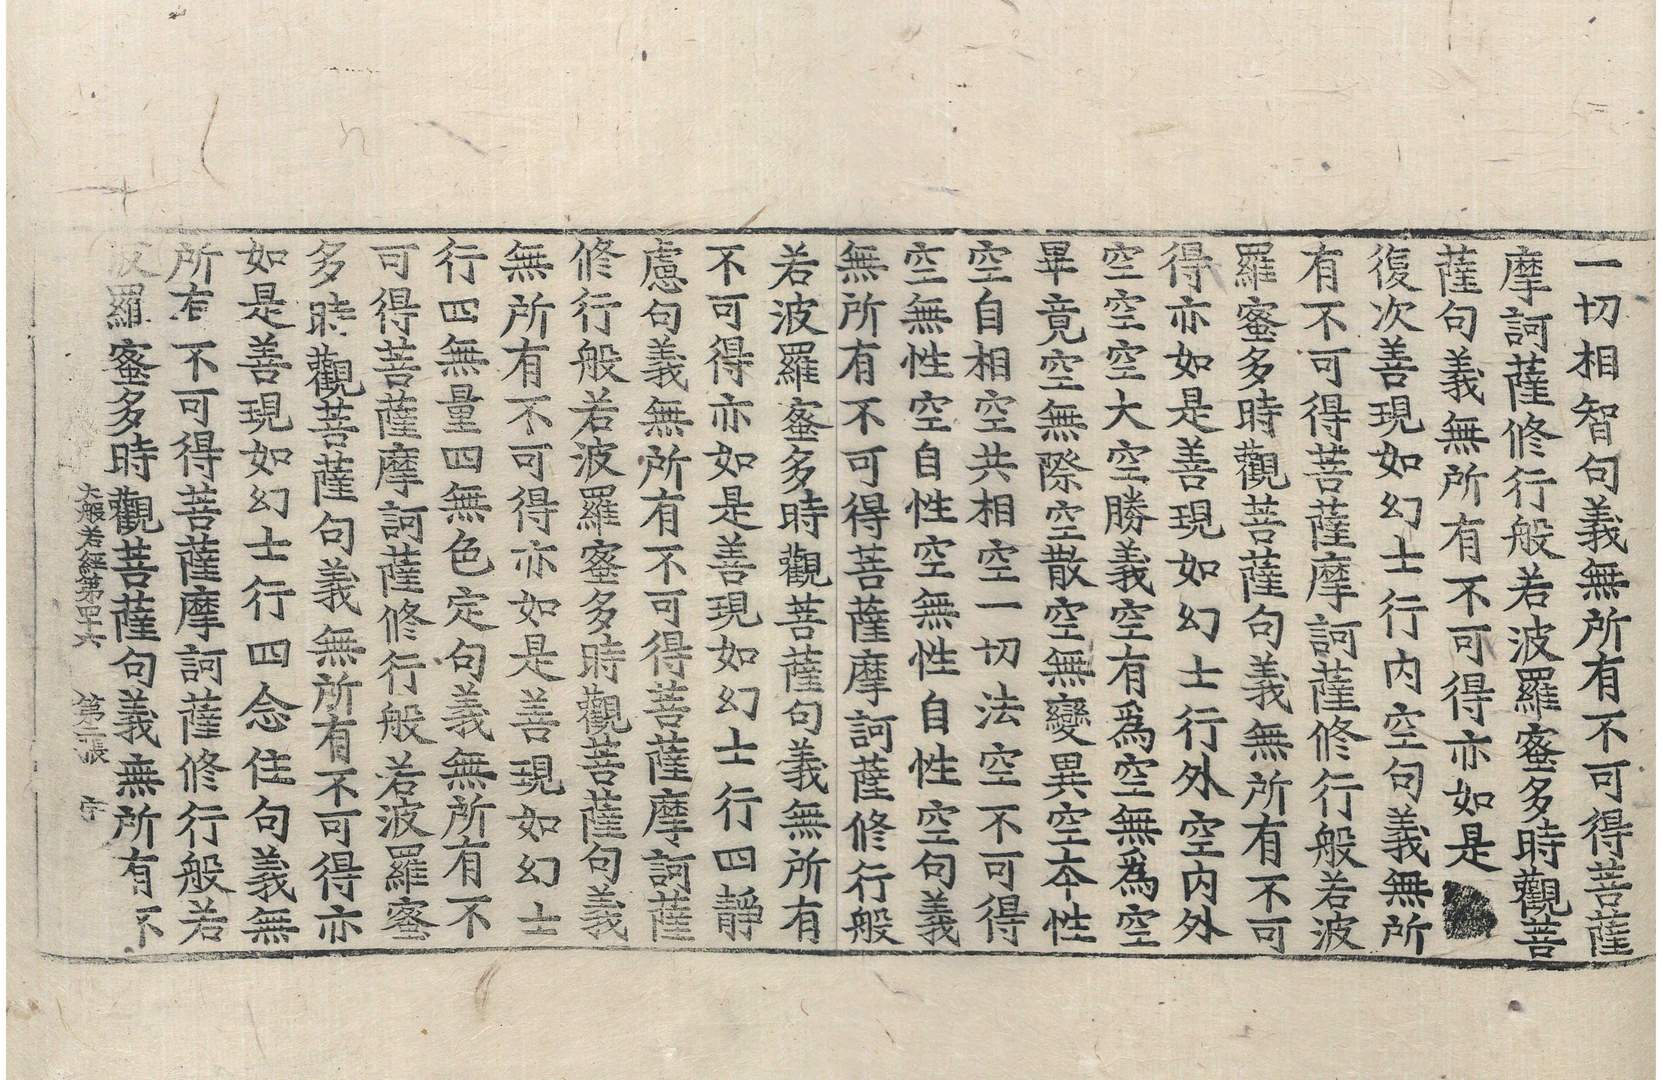 一切相智句義無所有不可得菩薩
摩訶薩修行般若波羅蜜多時觀菩
薩句義無所有不可得亦如是
復次善現如幻士行内空句義無所
有不可得菩薩摩訶薩修行般若波
羅蜜多時觀菩薩句義無所有不可
得亦如是善現如幻士行外空内外
空空空大空勝義空有爲空無爲空
畢竟空無際空散空無變異空本性
空自相空共相空一切法空不可得
空無性空自性空無性自性空句義
無所有不可得菩薩摩訶薩修行般
若波羅蜜多時觀菩薩句義無所有
不可得亦如是善現如幻士行四靜
慮句義無所有不可得菩薩摩訶薩
修行般若波羅蜜多時觀菩薩句義
無所有不可得亦如是善現如幻士
行四無量四無色定句義無所有不
可得菩薩摩訶薩修行般若波羅蜜
多時觀菩薩句義無所有不可得亦
如是善現如幻士行四念住句義無
所有不可得菩薩摩訶薩修行般若
波羅蜜多時觀菩薩句義無所有不
大般若經第四十六 第張